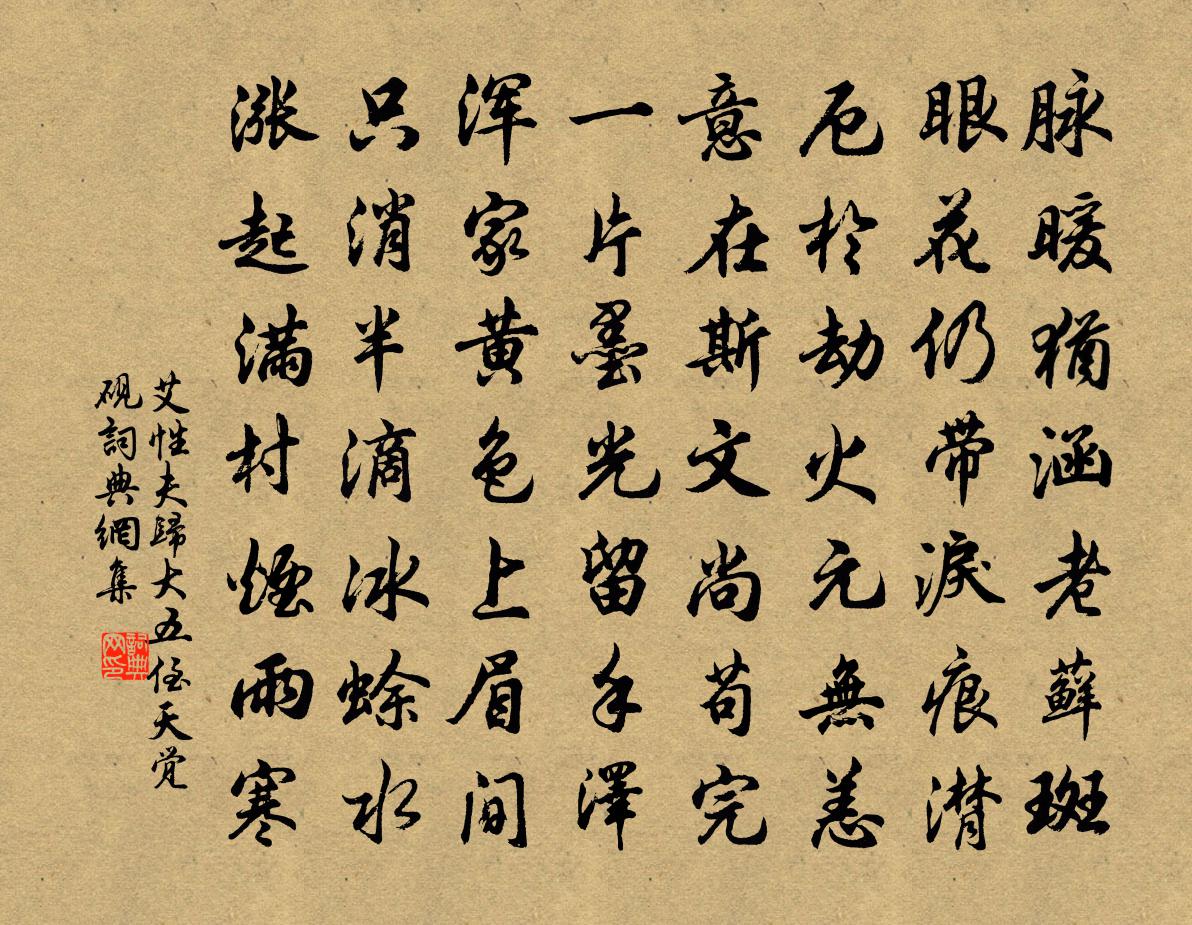 脉暖猶涵老蘚斑
眼花仍带淚痕潸
厄於劫火元無恙
意在斯文尚苟完
一片墨光留手澤
浑家黄色上眉间
只消半滴冰蜍水
涨起满村煙雨寒
艾性夫歸大五侄天觉
砚詞典網集
詞典网印